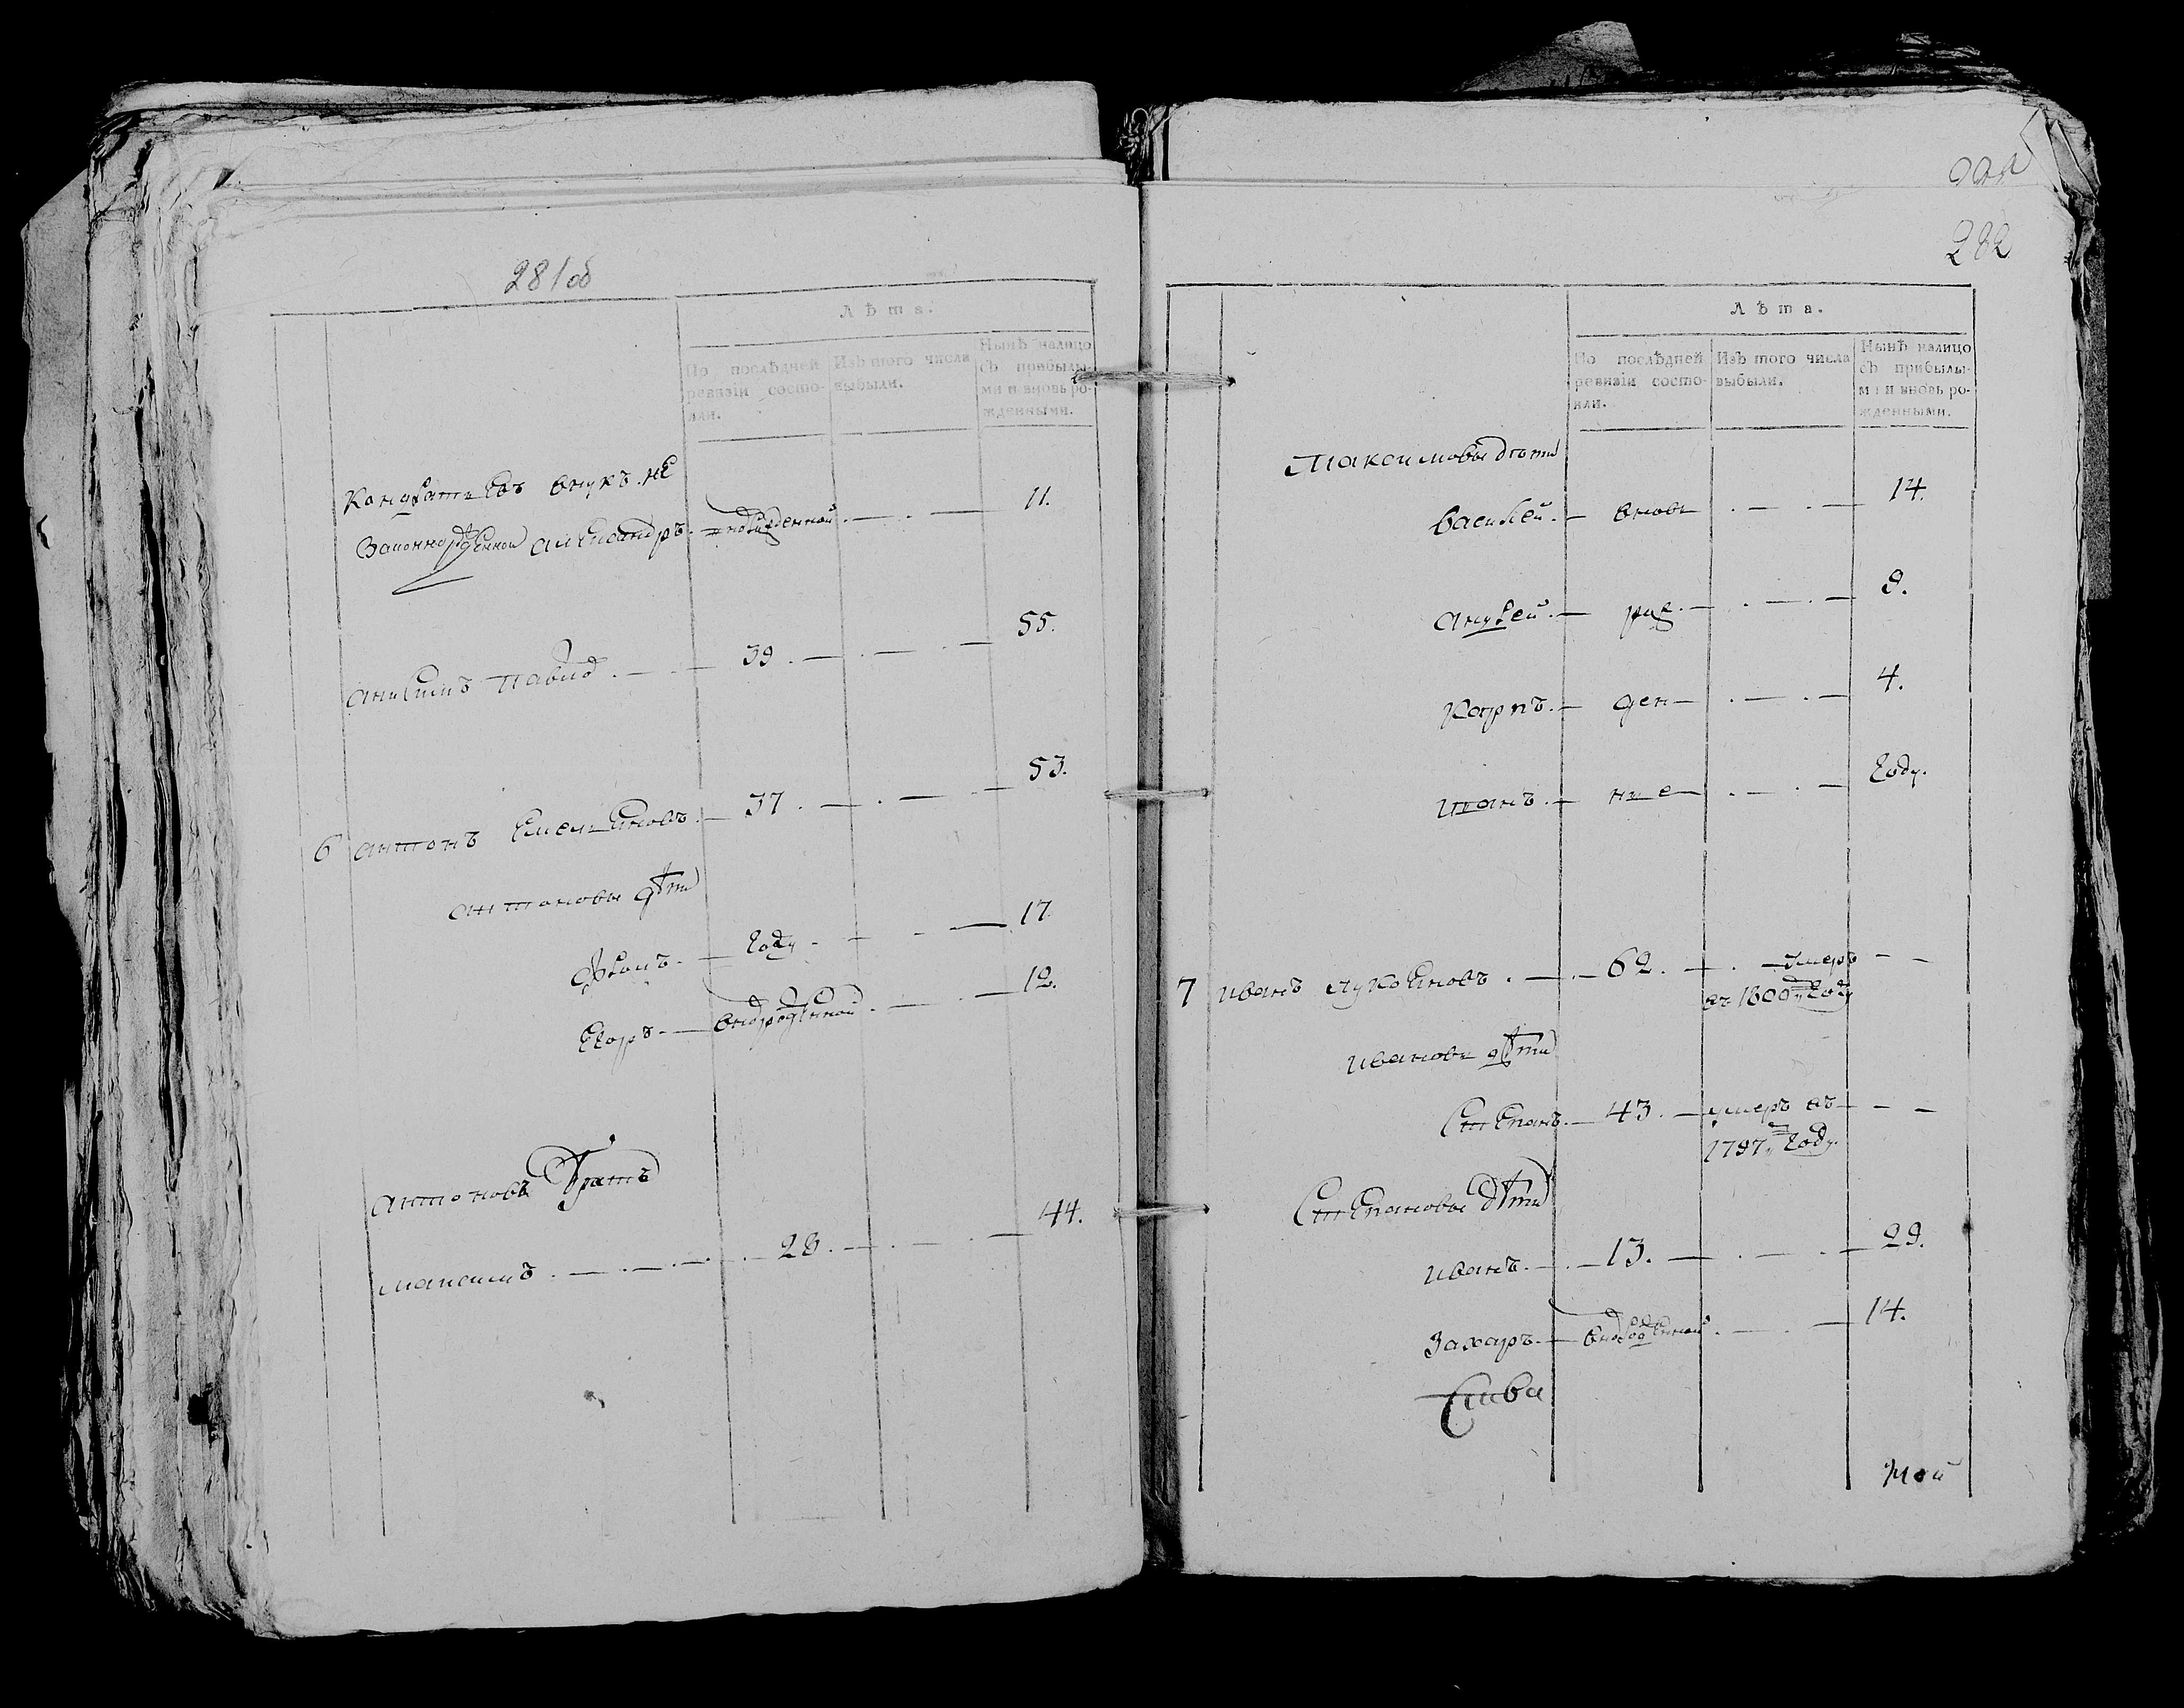 281об
Лѣта.
По послѣдней ревизіи состояли.
Изъ того числа выбыли.
Нынѣ налицо съ прибылыми и вновь рожденными.
Кондратьевъ внукъ не
законнорожденной Александръ. — новорожденной. — . — 11.
Анисимъ . — 39 . — . — . — 55.
6 Антонъ Емельяновъ. — 37 . — . — . — 53.
Антоновы дѣти
— году . — . — 17
Егоръ. — вновърожденной . — . — 12.
Антоновъ братъ
Максимъ . — . — . — 28 . — . — . — 44.
282
Лѣта.
По послѣдней ревизіи состояли.
Изъ того числа выбыли.
Нынѣ налицо съ прибылыми и вновь рожденными.
Максимовы дѣти
Василей. — вновь . — . — 14.
Андрей. — рож — . — . — 8.
Карпъ. — ден — . — . — 4.
Иванъ. — ные — . — . — году.
7 Иванъ Лукояновъ . — . — 62. — . — умеръ — —
въ 1800мъ году
Ивановы дѣти
Степанъ. — 43. — умеръ въ — — —
1797м году.
Степановы дѣти
Иванъ. — . — 13. — . — . — 29.
Захаръ. — вноворожденной . — . — 14.